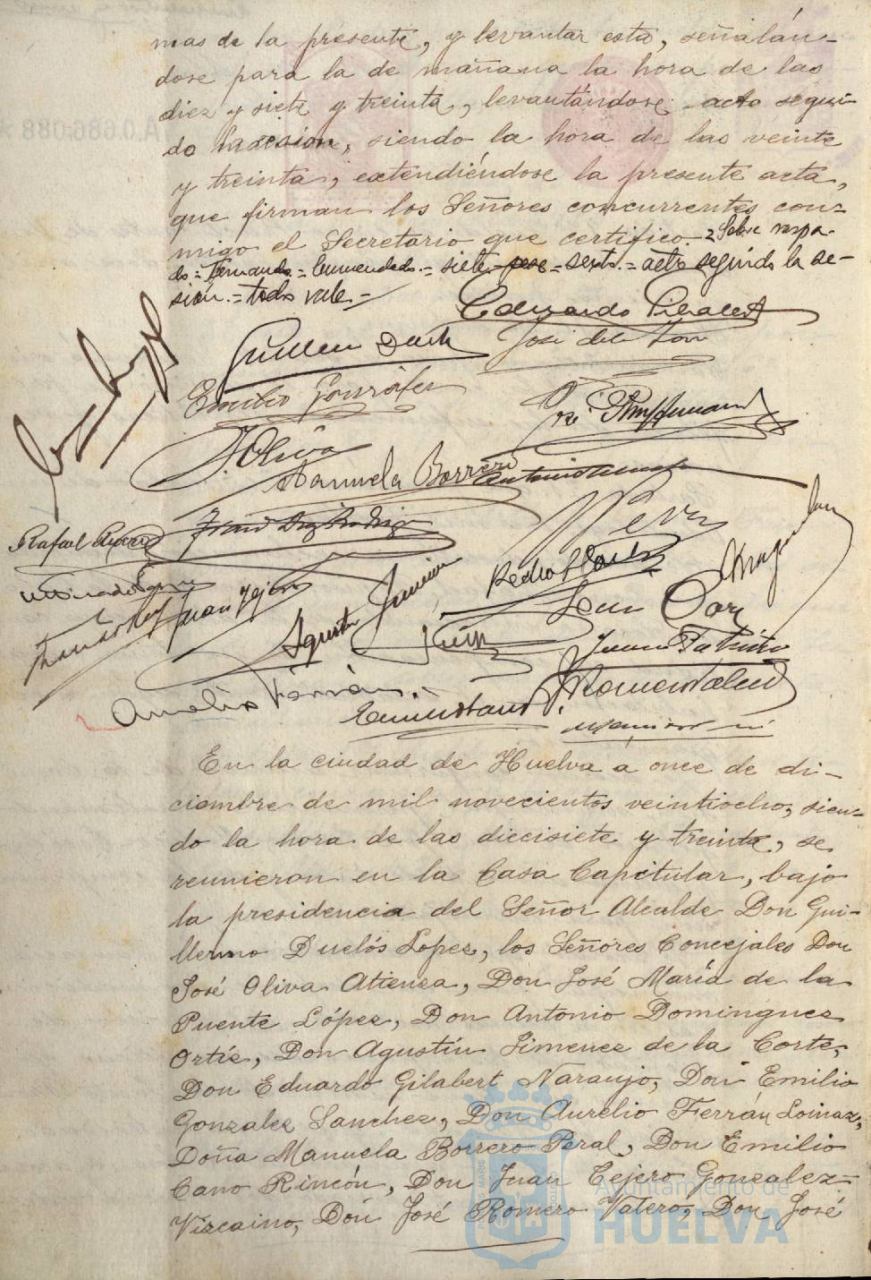 mas de la presente, y levantar esta, señalán-
dose para la de mañana la hora de las
diez y siete y treinta, levantándose acto segui-
do la sesion, siendo la hora de las veinte
y treinta, extendiéndose la presente acta,
que firman los Señores concurrentes con-
migo el Secretario que certifico. = Sobre raspa-
do = Fernando = Enmendado = siete = sexto = acto seguido la se-
sión = todo vale =
Eduardo Gilabert
José de la
Emilio González
J. Oliva
Manuela Borrero
Antonio
Rafael
Pedro
Juan Tejero
Agustín Jimenez
Aurelio Ferrán
J. Romero Valero
En la ciudad de Huelva a once de di-
ciembre de mil novecientos veintiocho, sien-
do la hora de las diecisiete y treinta, se
reunieron en la Casa Capitular, bajo
la presidencia del Señor Alcalde Don Gui-
llermo Duclós Lopez, los Señores Concejales Don
José Oliva Atienza, Don José María de la
Puente López, Don Antonio Dominguez
Ortíz, Don Agustín Jimenez de la Corte,
Don Eduardo Gilabert Naranjo, Don Emilio
Gonzalez Sanchez, Don Aurelio Ferrán Loinaz,
Doña Manuela Borrero Peral, Don Emilio
Cano Rincón, Don Juan Tejero Gonzalez-
Vizcaino, Don José Romero Valero, Don José
Ayuntamiento de
HUELVA